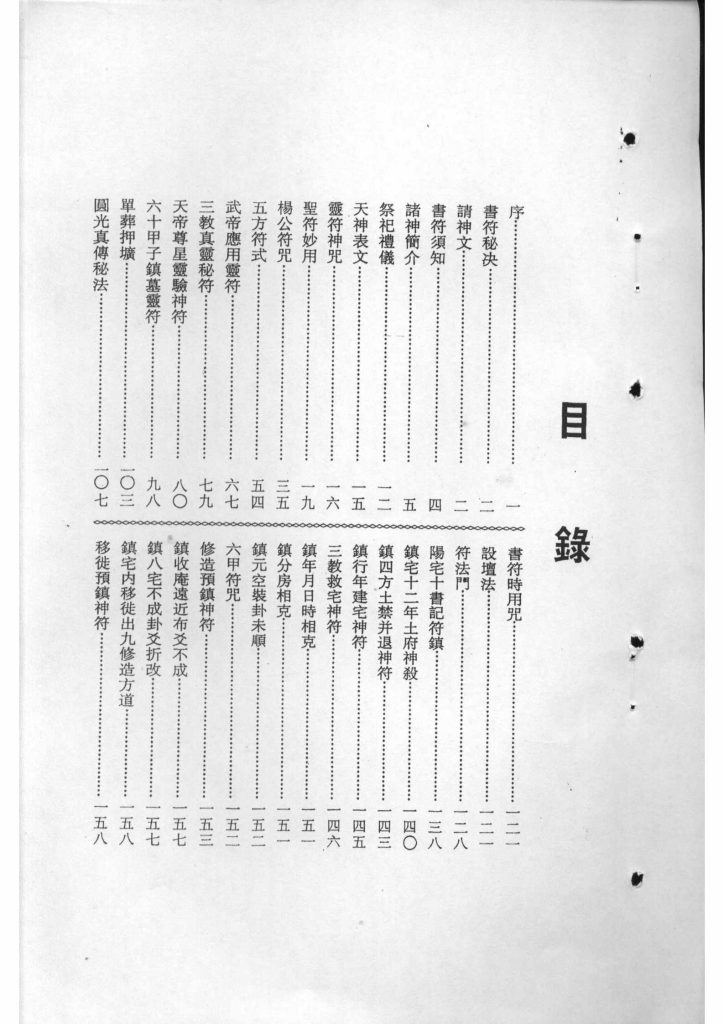 目錄
序……一
書符秘決……二
請神文……二
書符須知……四
諸神簡介……五
祭祀禮儀……一二
天神表文……一五
靈符神咒……一六
聖符妙用……一九
楊公符咒……三五
五方符式……五四
武帝應用靈符……六七
三教真靈秘符……七九
天帝尊星靈驗神符……八〇
六十甲子鎮墓靈符……九八
單葬押壙……一〇三
圓光真傳秘法……一〇七
書符時用咒……一二一
設壇法……一二一
符法門……一二八
陽宅十書記符鎮……一三八
鎮宅十二年土府神殺……一四〇
鎮四方土禁并退神符……一四三
鎮行年建宅神符……一四五
三教救宅神符……一四六
鎮年月日時相克……一五一
鎮分房相克……一五一
鎮元空裝卦未順……一五二
六甲符咒……一五二
修造預鎮神符……一五三
鎮收庵遠近布爻不成……一五七
鎮八宅不成卦爻折改……一五七
鎮宅内移徙出九修造方道……一五八
移徙預鎮神符……一五八